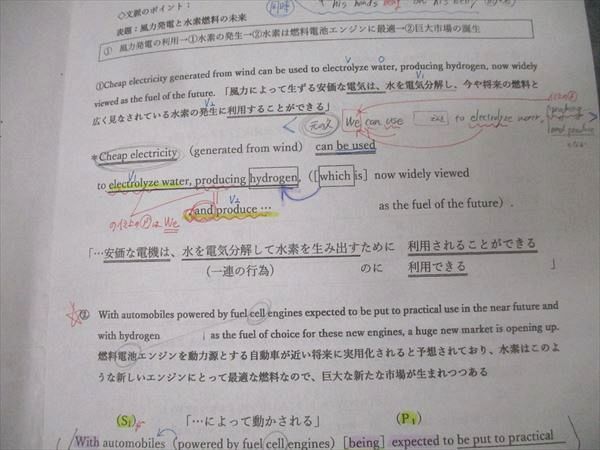 ◇文脈のポイント：
his hands
his belly
表題：風力発電と水素燃料の未来
① 風力発電の利用→①水素の発生→②水素は燃料電池エンジンに最適→②巨大市場の誕生
V O
①Cheap electricity generated from wind can be used to electrolyze water, producing hydrogen, now widely
viewed as the fuel of the future. 「風力によって生ずる安価な電気は、水を電気分解し、今や将来の燃料と
V1
V2
広く見なされている水素の発生に利用することができる」
We can use to electrolyze water,
and produce
*Cheap electricity （generated from wind） can be used
V1
to electrolyze water, producing hydrogen, （[which is] now widely viewed
V2
and produce …
as the fuel of the future）.
We
「…安価な電機は、水を電気分解して水素を生み出すために 利用されることができる
（一連の行為） のに 利用できる 」
② With automobiles powered by fuel cell engines expected to be put to practical use in the near future and
with hydrogen as the fuel of choice for these new engines, a huge new market is opening up.
燃料電池エンジンを動力源とする自動車が近い将来に実用化されると予想されており、水素はこのよ
うな新しいエンジンにとって最適な燃料なので、巨大な新たな市場が生まれつつある
(S₁) 「…によって動かされる」 (P₁)
With automobiles （powered by fuel cell engines） [being] expected to be put to practical